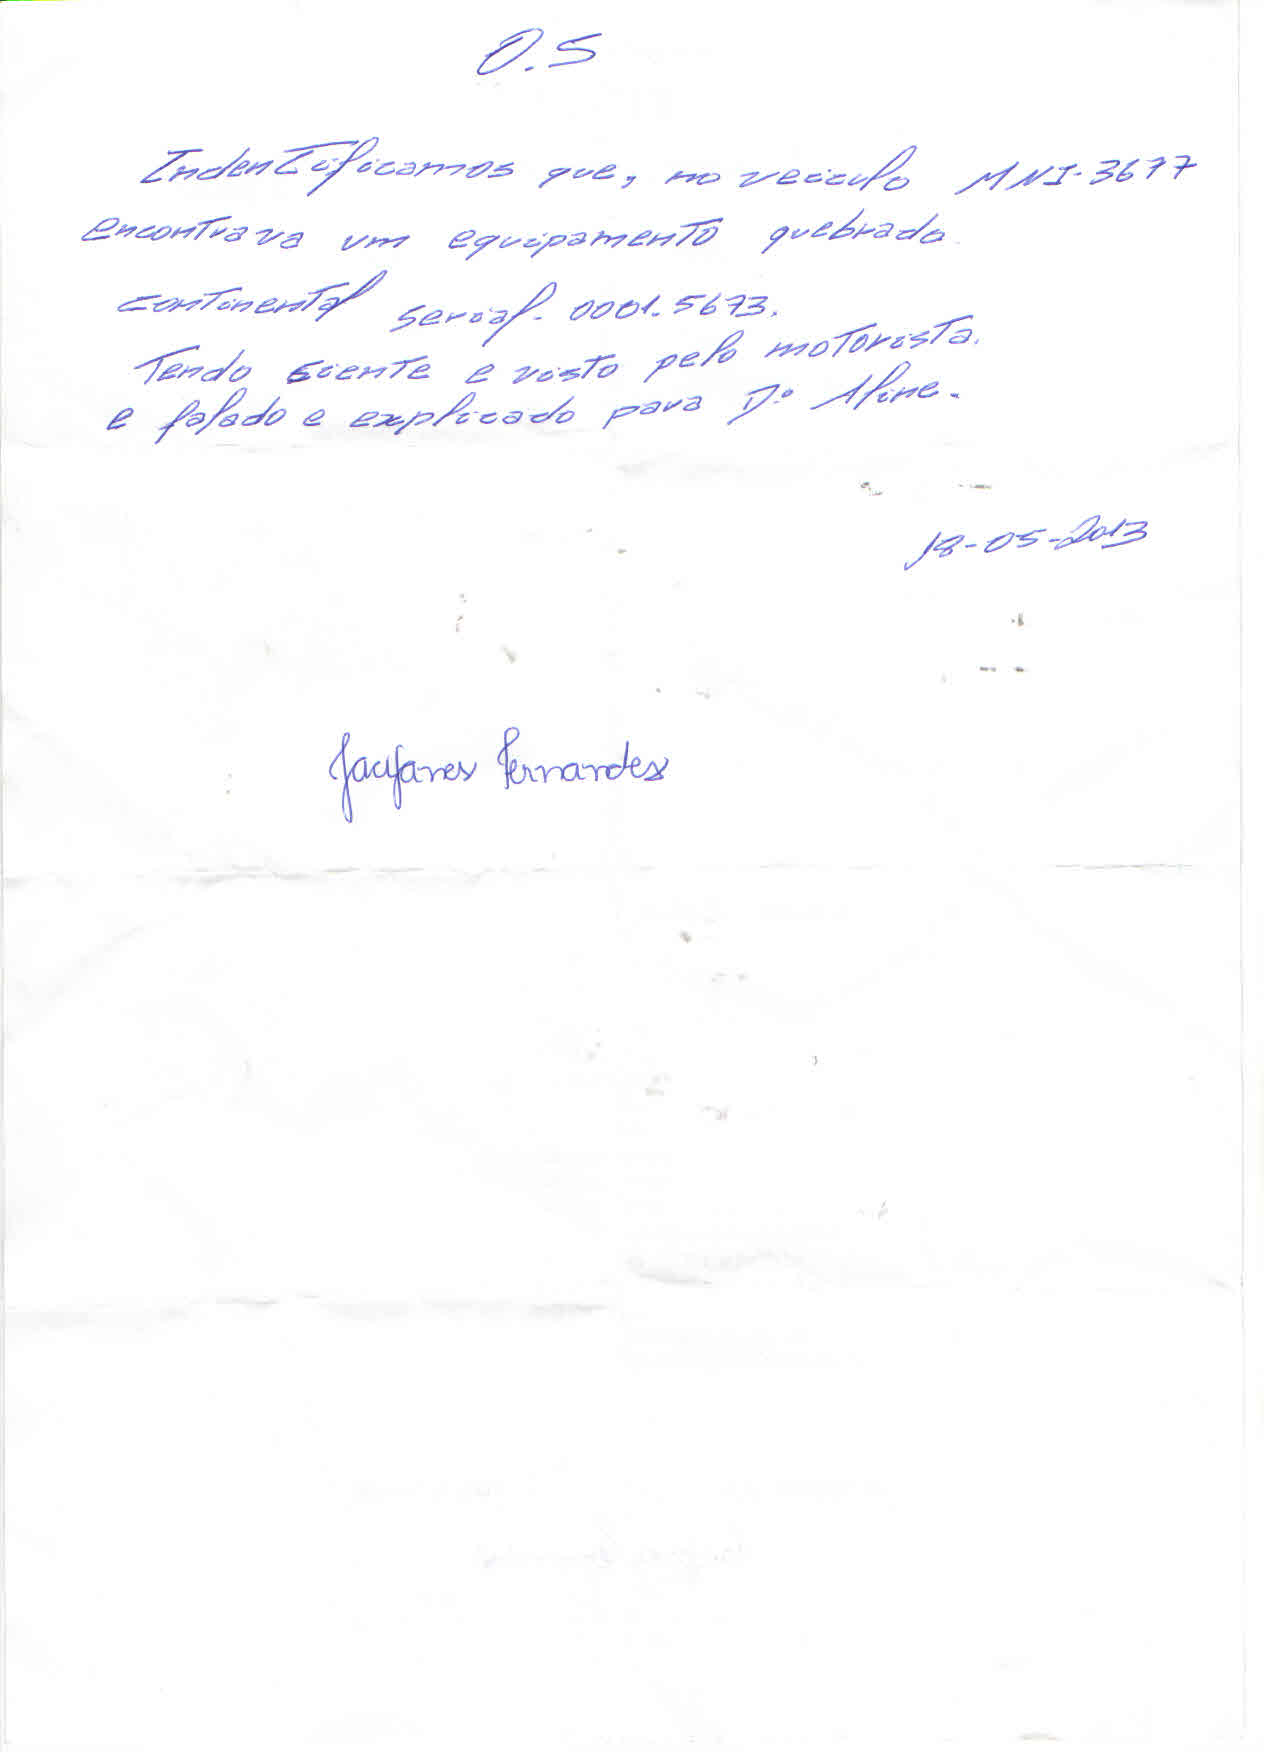 O.S
Indentificamos que, no veiculo MNI-3677
encontrava um equipamento quebrado.
continental serial. 0001.5673.
Tendo siente e visto pelo motorista.
e falado e explicado para Dº Aline.
18-05-2013
Fernandes